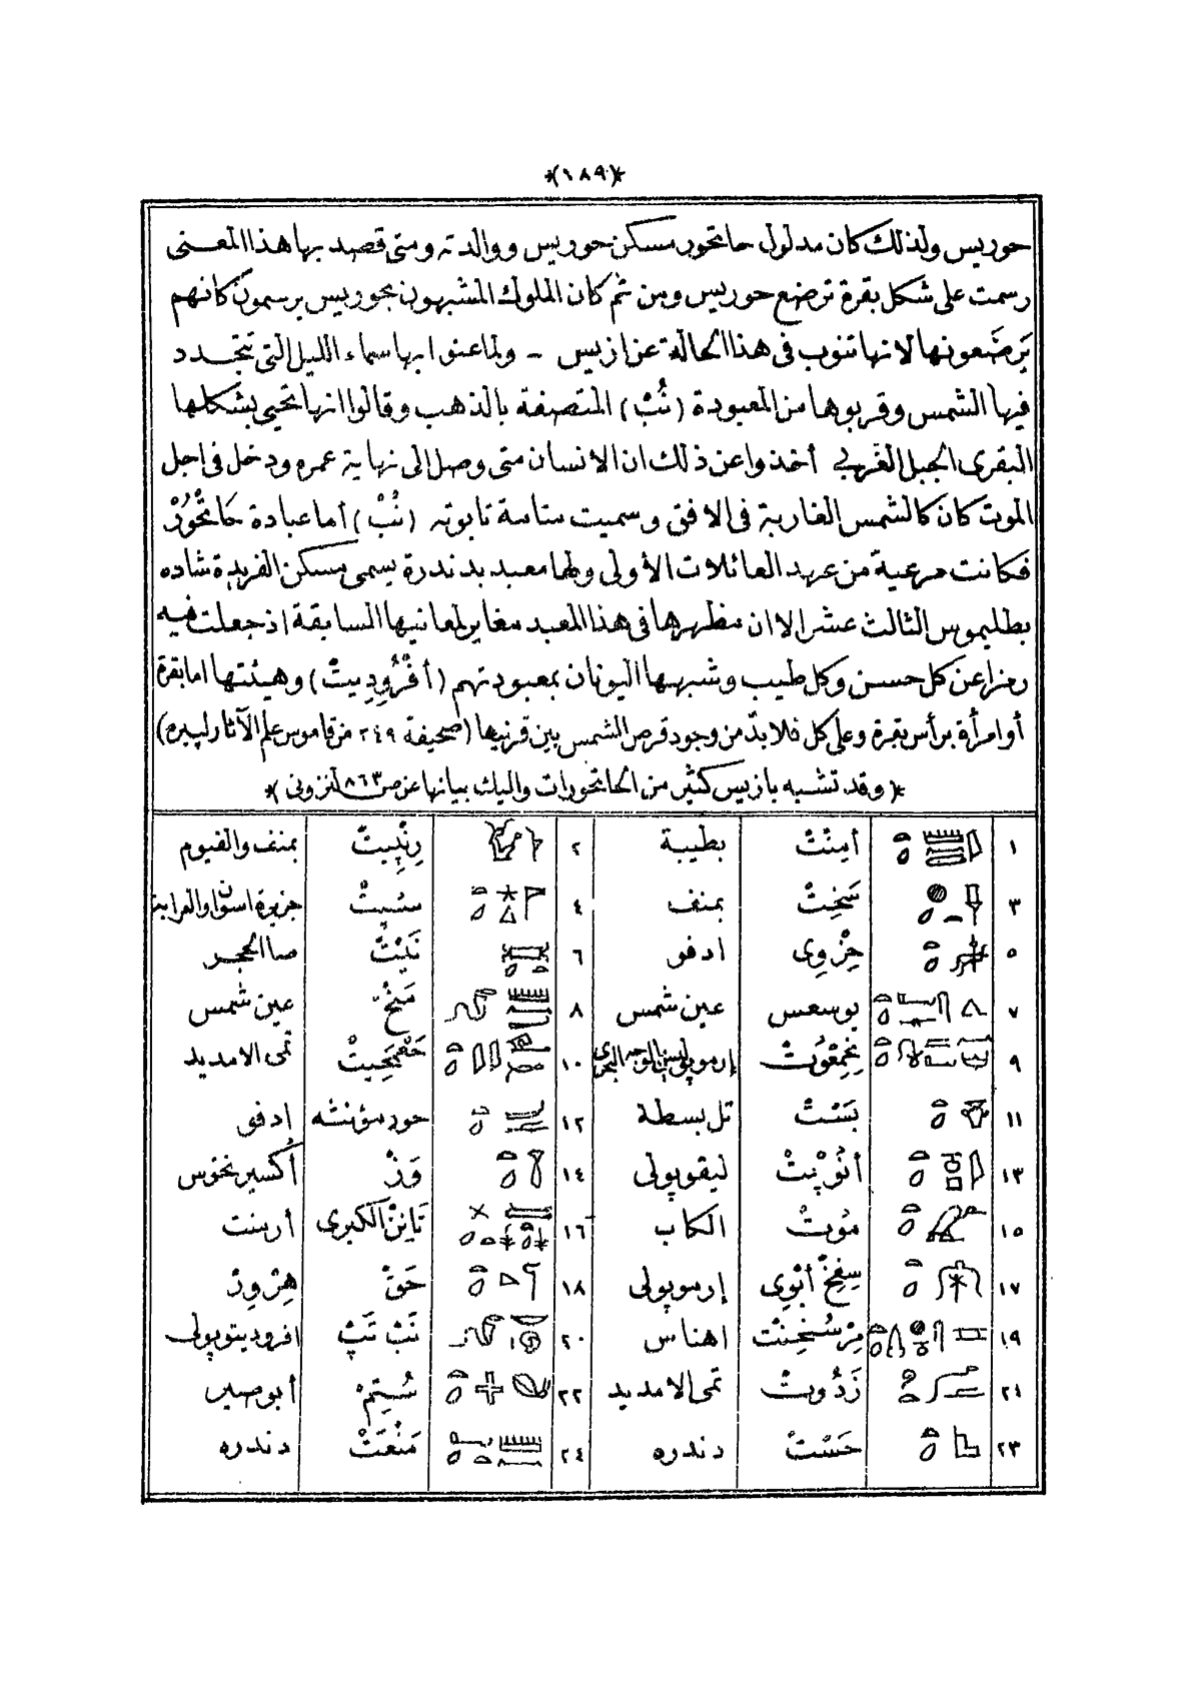 *(١٨٩)*
حوريس ولذلك كان مدلول حاتحور مسكن حوريس ووالدته ومتى قصد بها هذا المعنى
رسمت على شكل بقرة ترضع حوريس ومن ثم كان الملوك المشبهون بحوريس يرسمون كانهم
يَرضَعونها لانها تنوب فى هذا الحالة عن ازيس - ولما عنوا بها سماء الليل التى تتجدد
فيها الشمس وقربوها من المعبودة (نُبْ) المتصفة بالذهب وقالوا انها تحيى بشكلها
البقرى الجبل الغربي أخذوا عن ذلك ان الانسان متى وصل الى نهاية عمره ودخل فى اجل
الموت كان كالشمس الغاربة فى الافق وسميت ستاسة تابوته (نُبْ) أما عبادة حَاتْحُورْ
فكانت مرعية من عهد العائلات الأولى ولها معبد بدندرة يسمى مسكن الفريدة شاده
بطليموس الثالث عشر الا ان مظهرها فى هذا المعبد مغاير لمعانيها السابقة اذ جعلت فيه
رمزا عن كل حسن وكل طيب وشبهها اليونان بمعبودتهم (أفْرُودِيتْ) وهيئتها اما بقرة
أو امرأة برأس بقرة وعلى كل فلا بدّ من وجود قرص الشمس بين قرنيها (صحيفة ٢٤٩ من قاموس علم الآثار لپيره)
*(وقد تشبه بازيس كثير من الحاتحورات واليك بيانها عن ص ٨٦٣ لنزونى)*
١ أمِنْتْ بطيبة ٢ رِنْپِيتْ بمنف والفيوم
٣ سَخِتْ بمنف ٤ سپتْ جزيرة اسوان والعرابة
٥ حِزْوِى ادفو ٦ نَيْتْ صا الحجر
٧ يوسعس عين شمس ٨ مَنْحْ عين شمس
٩ نِحِمْعُوتْ إرموپوليس بالوجه البحرى ١٠ حَعْمَحِيتْ تمى الامديد
١١ بَسْتْ تل بسطة ١٢ حور سؤنشه ادفو
١٣ أنُوپْتْ ليقوپولى ١٤ وَزْ أكسيرنخوس
١٥ مُوتْ الكاب ١٦ تَاپِنْ الكبرى أرمنت
١٧ سِفِخْ أبْوِى إرموپولى ١٨ حَقْ هِرْوِرْ
١٩ مِرْسُخِنْتْ اهناس ٢٠ نَبْ تَپْ افروديتوپولى
٢١ زَدُوتْ تمى الامديد ٢٢ سُتِمْ أبو صير
٢٣ حَسْتْ دندره ٢٤ مَنْعَتْ دندره